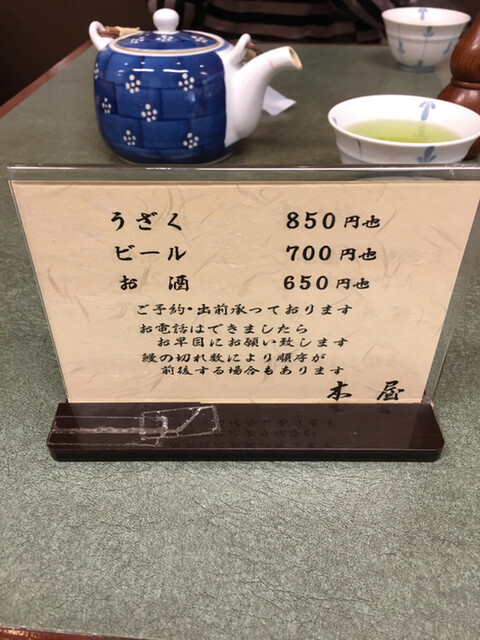 うざく 850円也
ビール 700円也
お酒 650円也
ご予約・出前承っております
お電話はできましたら
お早目にお願い致します
鰻の切れ数により順序が
前後する場合もあります
本屋